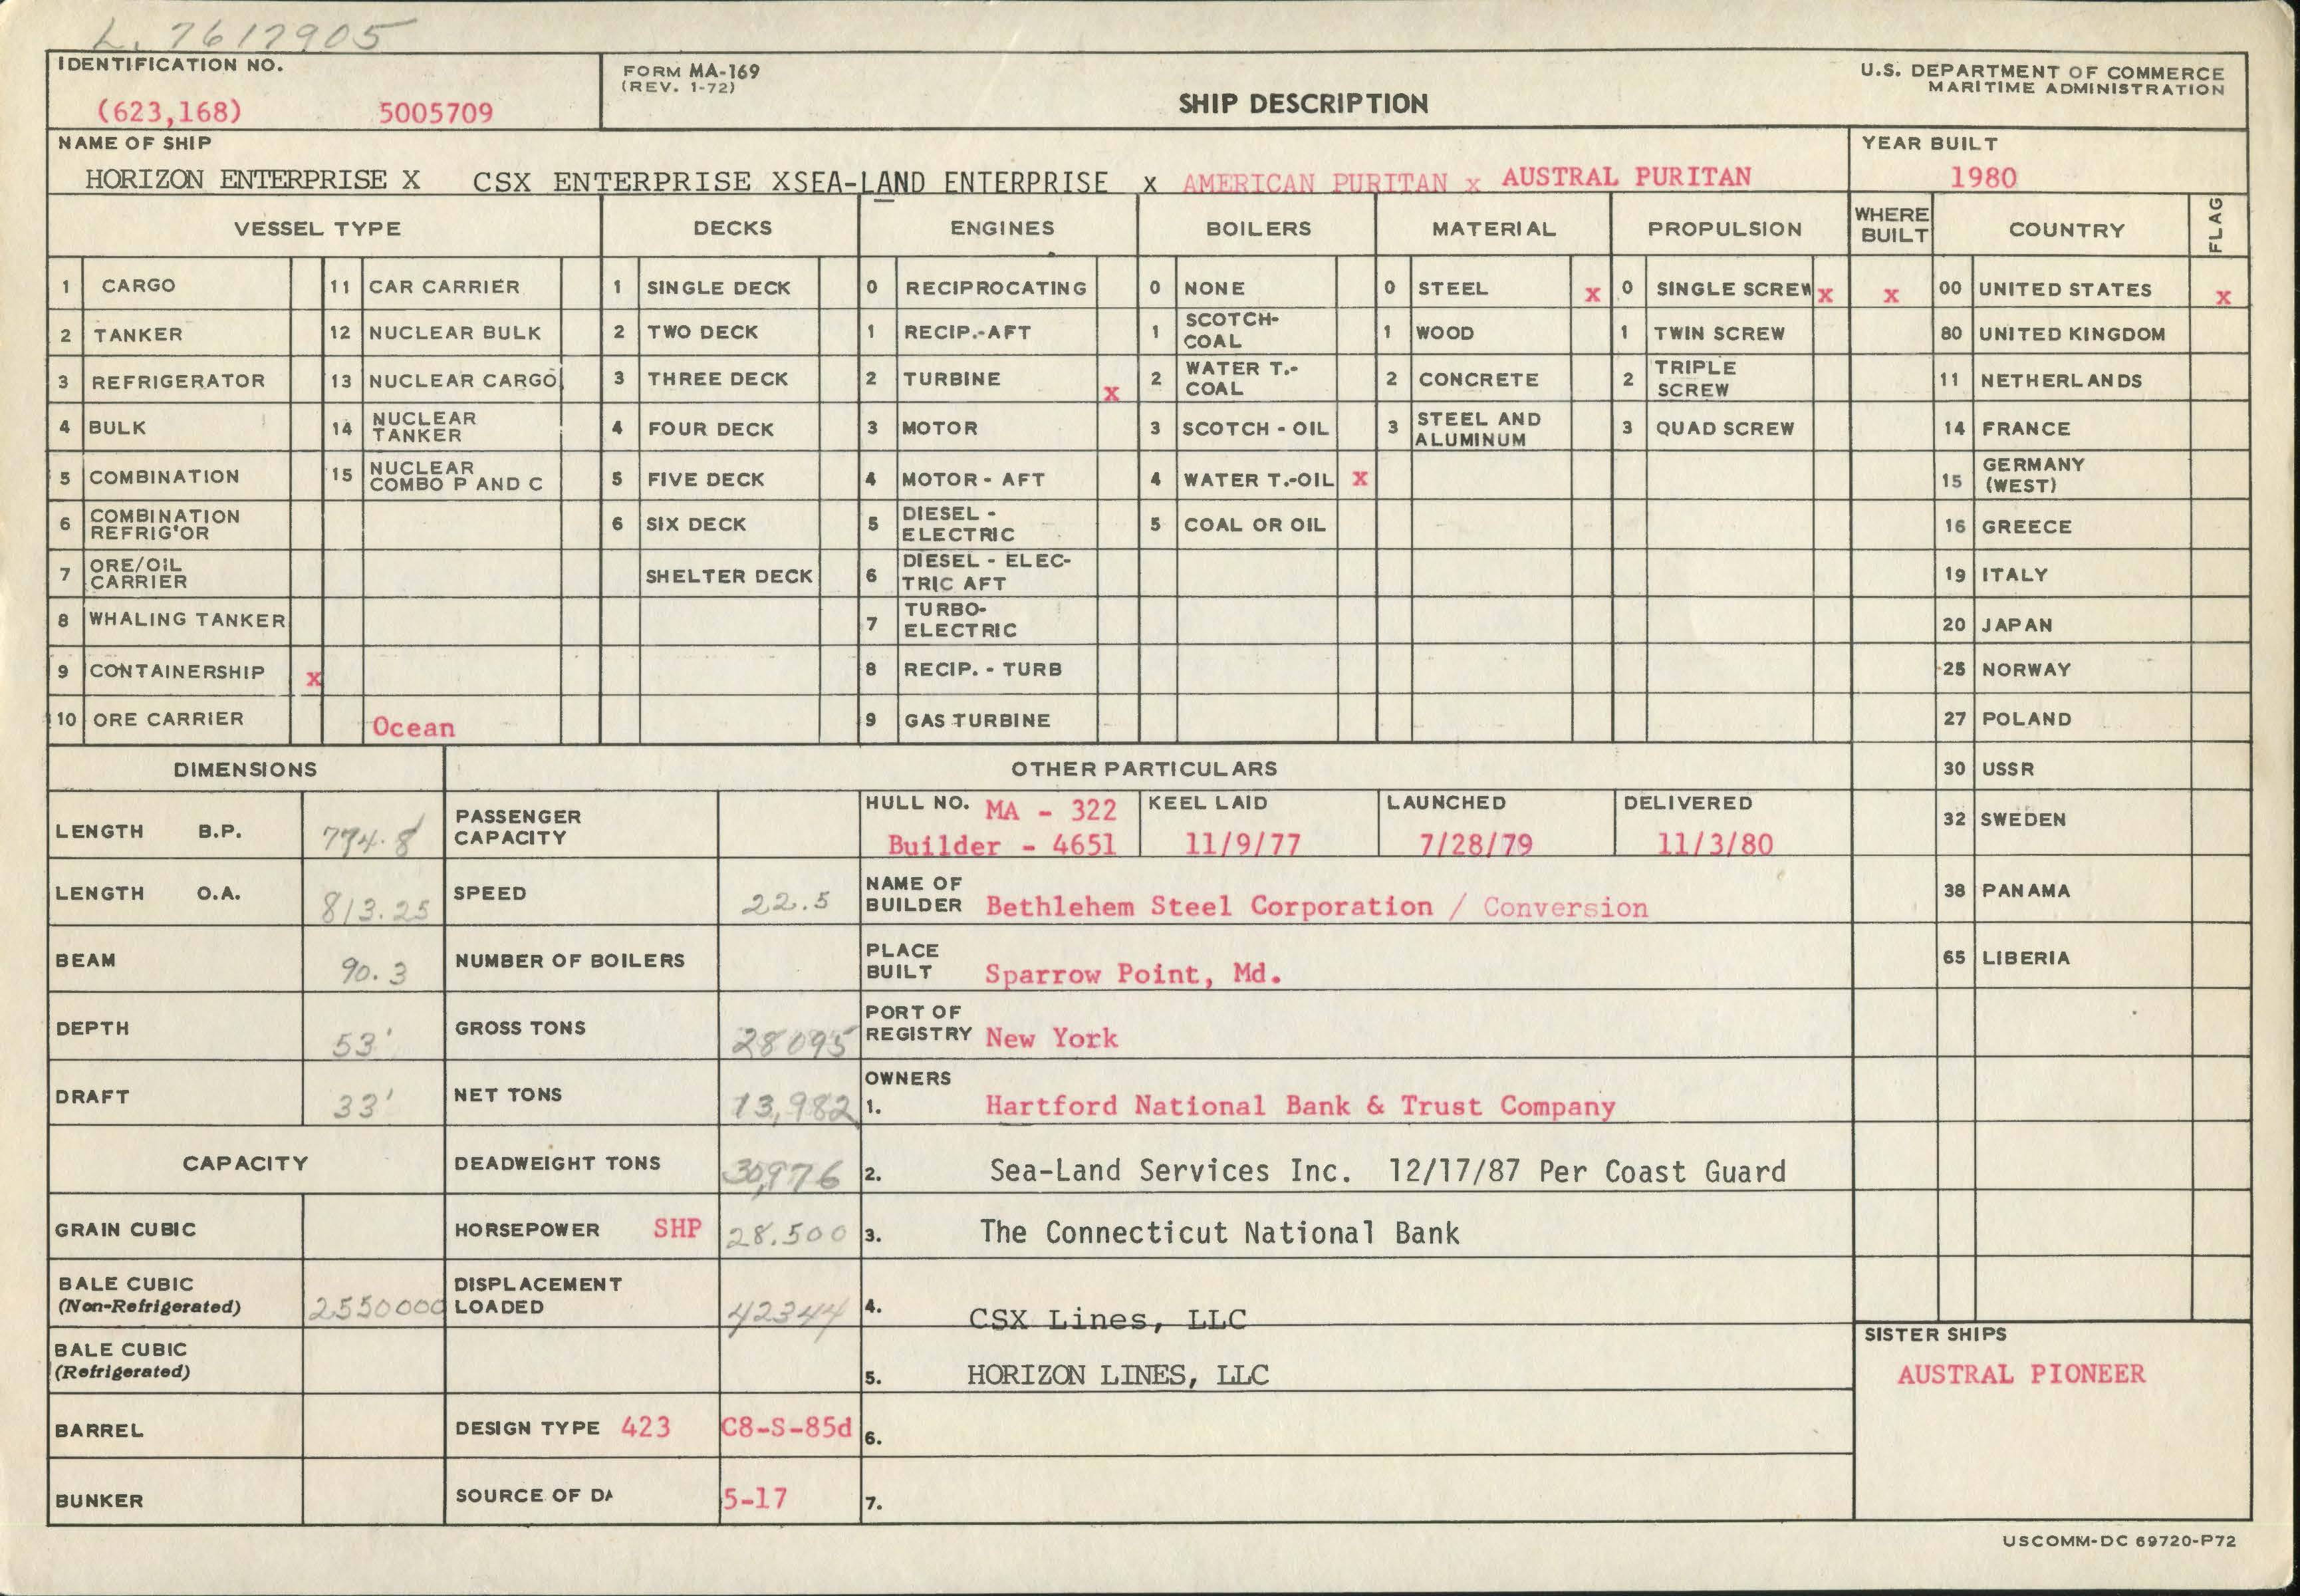 L. 7617905
IDENTIFICATION NO.
(623,168) 5005709
FORM MA-169
(REV. 1-72)
SHIP DESCRIPTION
U.S. DEPARTMENT OF COMMERCE
MARITIME ADMINISTRATION
NAME OF SHIP
HORIZON ENTERPRISE X CSX ENTERPRISE XSEA-LAND ENTERPRISE x AMERICAN PURITAN x AUSTRAL PURITAN
YEAR BUILT
1980
VESSEL TYPE DECKS ENGINES BOILERS MATERIAL PROPULSION WHERE BUILT COUNTRY FLAG
1 CARGO 11 CAR CARRIER 1 SINGLE DECK 0 RECIPROCATING 0 NONE 0 STEEL x 0 SINGLE SCREW x x 00 UNITED STATES x
2 TANKER 12 NUCLEAR BULK 2 TWO DECK 1 RECIP.-AFT 1 SCOTCH-COAL 1 WOOD 1 TWIN SCREW 80 UNITED KINGDOM
3 REFRIGERATOR 13 NUCLEAR CARGO 3 THREE DECK 2 TURBINE x 2 WATER T.-COAL 2 CONCRETE 2 TRIPLE SCREW 11 NETHERLANDS
4 BULK 14 NUCLEAR TANKER 4 FOUR DECK 3 MOTOR 3 SCOTCH - OIL 3 STEEL AND ALUMINUM 3 QUAD SCREW 14 FRANCE
5 COMBINATION 15 NUCLEAR COMBO P AND C 5 FIVE DECK 4 MOTOR - AFT 4 WATER T.-OIL x 15 GERMANY (WEST)
6 COMBINATION REFRIG'OR 6 SIX DECK 5 DIESEL - ELECTRIC 5 COAL OR OIL 16 GREECE
7 ORE/OIL CARRIER SHELTER DECK 6 DIESEL - ELECTRIC AFT 19 ITALY
8 WHALING TANKER 7 TURBO-ELECTRIC 20 JAPAN
9 CONTAINERSHIP x 8 RECIP. - TURB 25 NORWAY
10 ORE CARRIER Ocean 9 GAS TURBINE 27 POLAND
DIMENSIONS OTHER PARTICULARS 30 USSR
LENGTH B.P. 794.8 PASSENGER CAPACITY HULL NO. MA - 322 Builder - 4651 KEEL LAID 11/9/77 LAUNCHED 7/28/79 DELIVERED 11/3/80 32 SWEDEN
LENGTH O.A. 813.25 SPEED 22.5 NAME OF BUILDER Bethlehem Steel Corporation / Conversion 38 PANAMA
BEAM 90.3 NUMBER OF BOILERS PLACE BUILT Sparrow Point, Md. 65 LIBERIA
DEPTH 53' GROSS TONS 28095 PORT OF REGISTRY New York
DRAFT 33' NET TONS 13,982 OWNERS 1. Hartford National Bank & Trust Company
CAPACITY DEADWEIGHT TONS 30,976 2. Sea-Land Services Inc. 12/17/87 Per Coast Guard
GRAIN CUBIC HORSEPOWER SHP 28.500 3. The Connecticut National Bank
BALE CUBIC (Non-Refrigerated) 2550000 DISPLACEMENT LOADED 42344 4. CSX Lines, LLC
BALE CUBIC (Refrigerated) 5. HORIZON LINES, LLC
SISTER SHIPS
AUSTRAL PIONEER
BARREL DESIGN TYPE 423 C8-S-85d 6.
BUNKER SOURCE OF DA 5-17 7.
USCOMM-DC 69720-P72